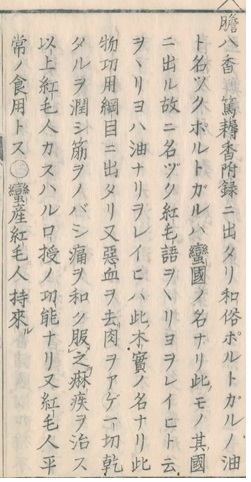 膽八香 篤耨香附録ニ出タリ和俗ポルトガルノ油
ト名ヅクポルトガルハ蠻國ノ名ナリ此モノ其國
ニ出ル故ニ名ヅク紅毛語ヲヽリヨヲレイヒト云
ヲヽリヨハ油ナリヲレイヒハ此木實ノ名ナリ此
物功用綱目ニ出タリ又惡血ヲ去肉ヲアゲ一切乾
タルヲ潤シ筋ヲノバシ痛ヲ和ク服之痳疾ヲ治ス
以上紅毛人カスハルロ授ノ功能ナリ又紅毛人平
常ノ食用トス○蠻産紅毛人持來ル